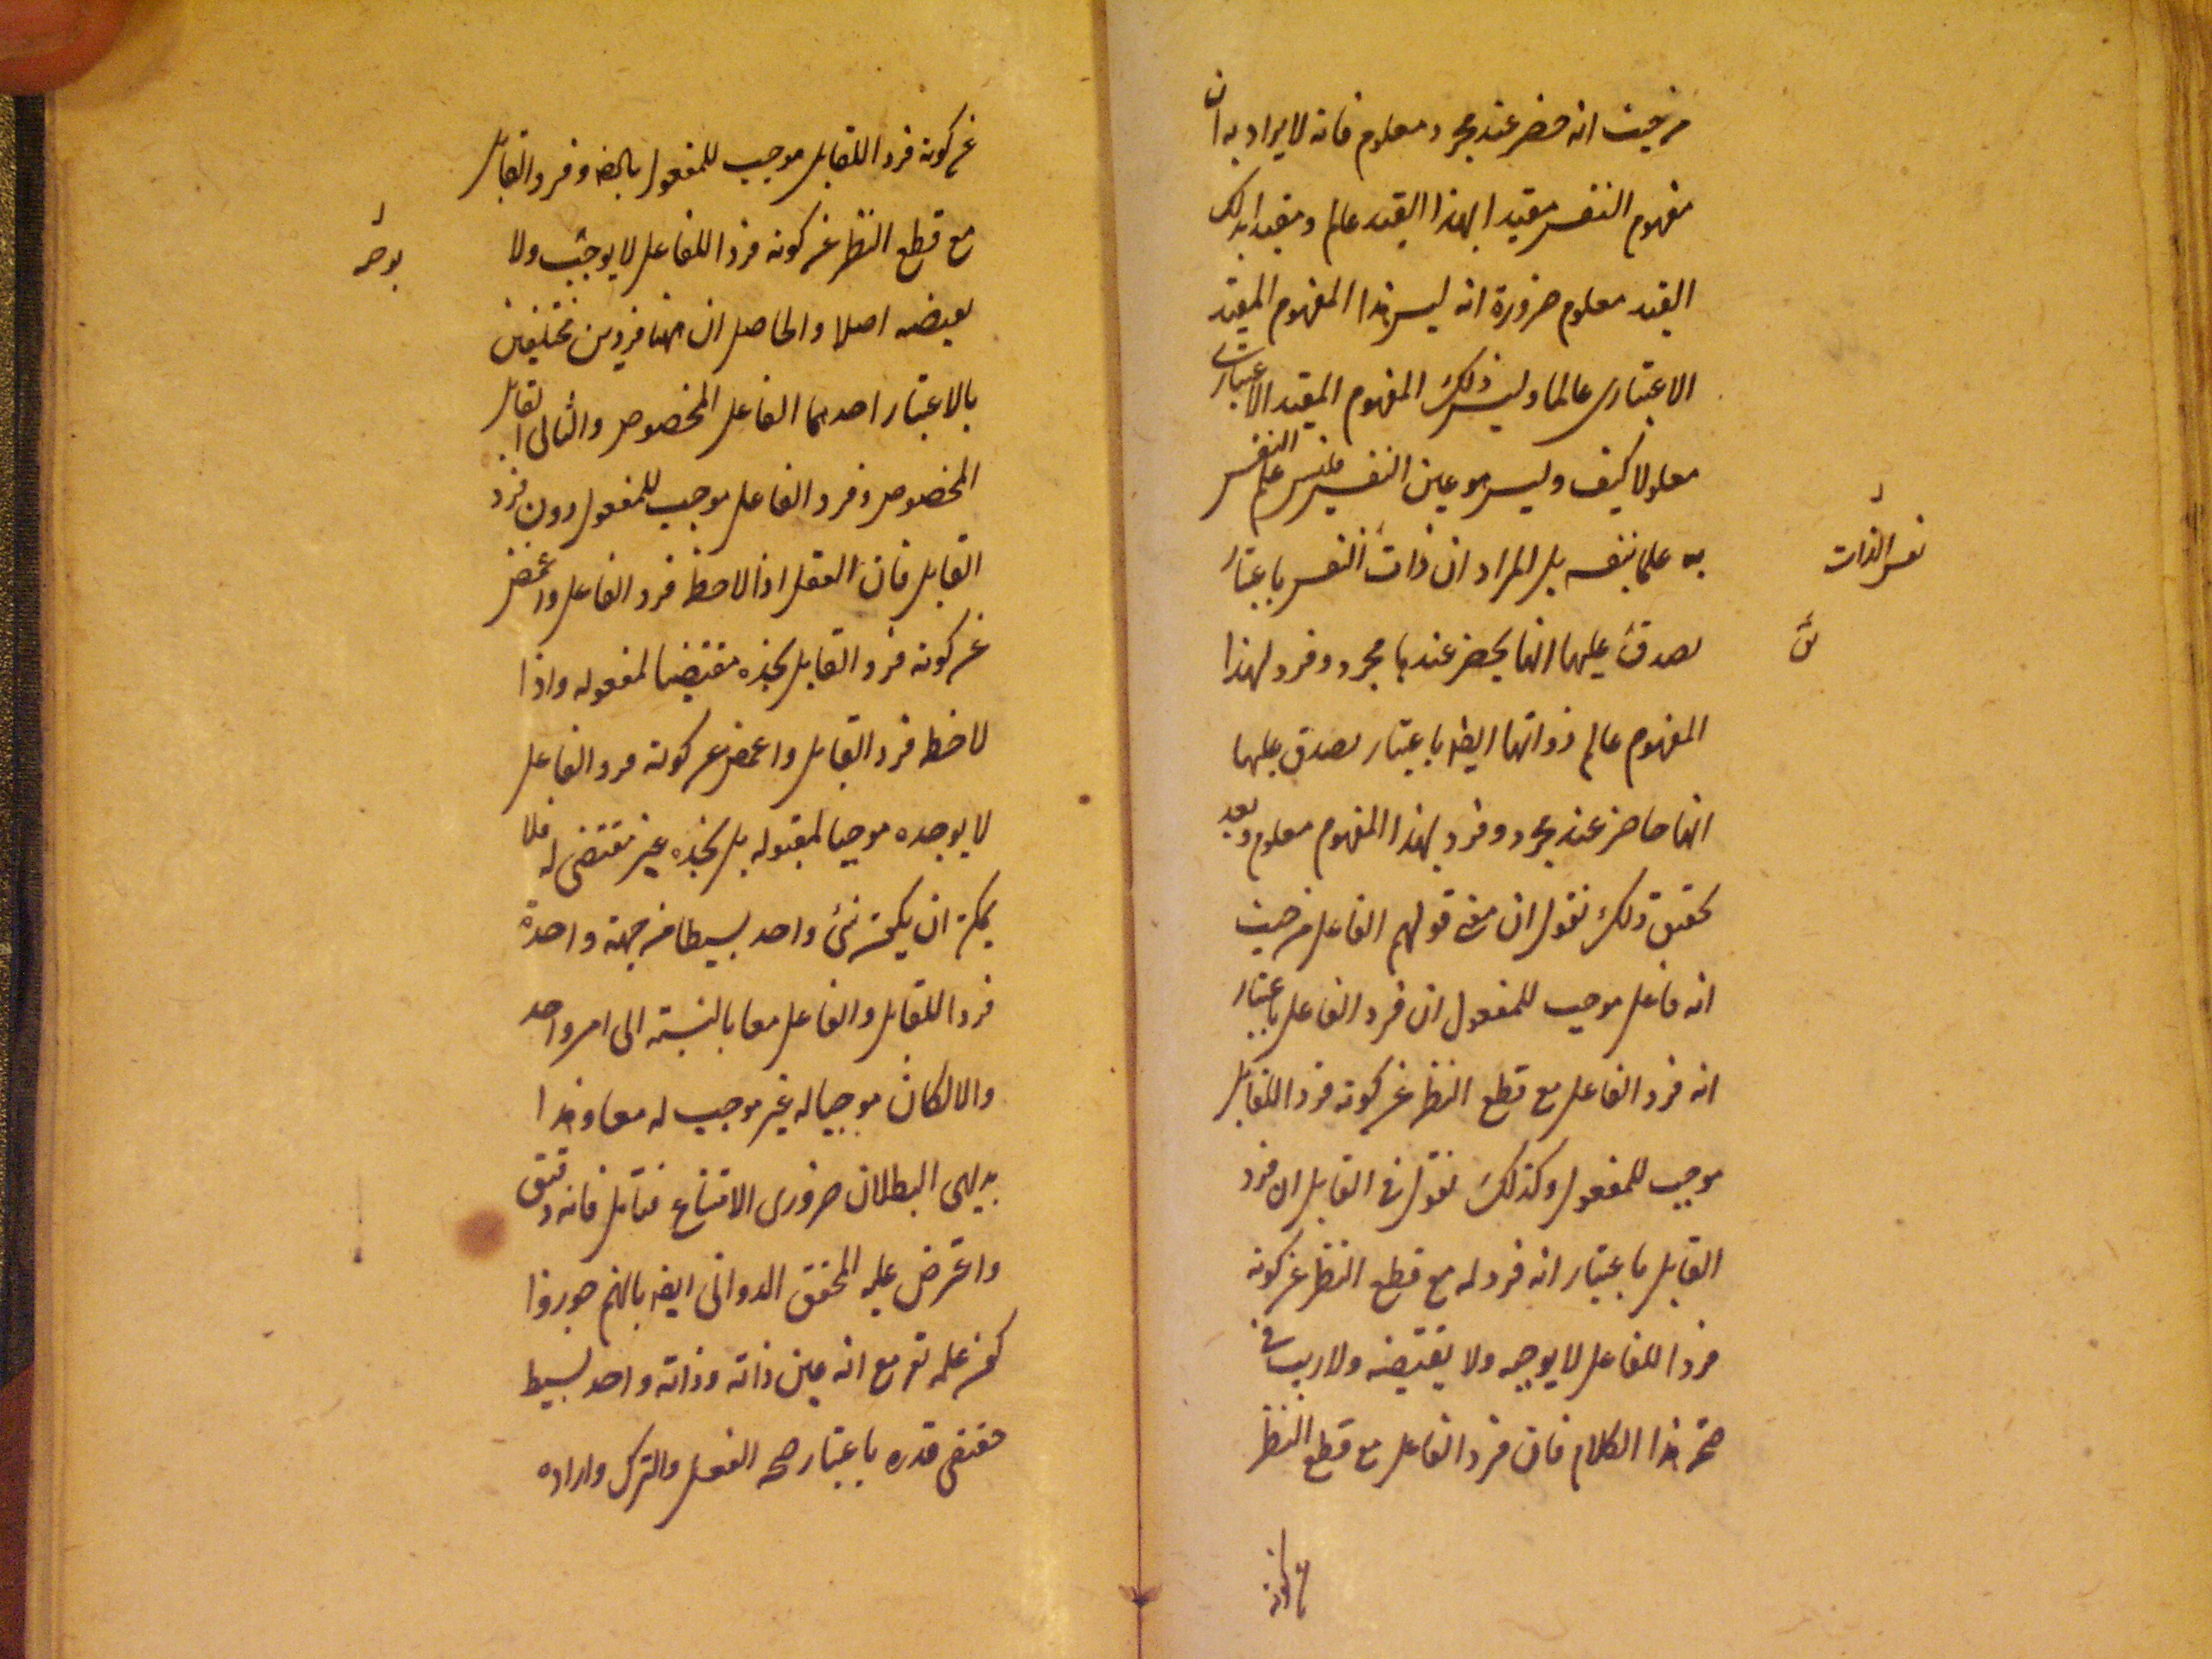 من حيث انه حضر عند مجرد معلوم فانه لا يراد به ان
مفهوم النفس مقيدا بهذا القيد عالم ومقيدا بذلك
القيد معلوم ضرورة انه ليس هذا المفهوم المقيد
الاعتبارى عالما وليس ذلك المفهوم المقيد الاعتبارى
معلولا كيف وليس هو عين النفس فليس علم النفس
به علما بنفسه بل المراد ان ذات النفس باعتبار
نفس الذات
يصدق عليها انها يحضر عندها مجرد وفرد لهذا
المفهوم عالم وذواتها ايضا باعتبار يصدق عليها
انها حاضر عند مجرد وفرد لهذا المفهوم معلوم وبعد
تحقيق ذلك نقول ان معنى قولهم الفاعل من حيث
انه فاعل موجب للمفعول ان فرد الفاعل باعتبار
انه فرد الفاعل مع قطع النظر عن كونه فردا للقابل
موجب للمفعول وكذلك نقول فى القابل ان فرد
القابل باعتبار انه فرد له مع قطع النظر عن كونه
فردا للفاعل لا يوجبه ولا يقتضيه ولا ريب فى
صحة هذا الكلام فان فرد الفاعل مع قطع النظر
عن كونه
عن كونه فردا للقابل موجب للمفعول بالضرورة وفرد القابل
مع قطع النظر عن كونه فردا للفاعل لا يوجب ولا
يقتضيه اصلا والحاصل ان ههنا فردين مختلفين
بالاعتبار احدهما الفاعل المخصوص والثانى القابل
المخصوص وفرد الفاعل موجب للمفعول دون فرد
القابل فان العقل اذا لاحظ فرد الفاعل واغمض
عن كونه فرد القابل يجده مقتضيا لمفعوله واذا
لاحظ فرد القابل واغمض عن كونه فرد الفاعل
لا يوجده موجبا لمقبوله بل يجده غير مقتضى له فلا
يمكن ان يكون شئ واحد بسيطا من جهة واحدة
فردا للقابل والفاعل معا بالنسبة الى امر واحد
والا لكان موجبا له غير موجب له معا وهذا
بديهى البطلان ضرورى الامتناع فتأمل فانه دقيق
واعترض عليه المحقق الدوانى ايضا بانهم جوزوا
كون علمه تع مع انه عين ذاته وذاته واحد بسيط
مقتضى قدره باعتبار صحه الفعل والترك واراده